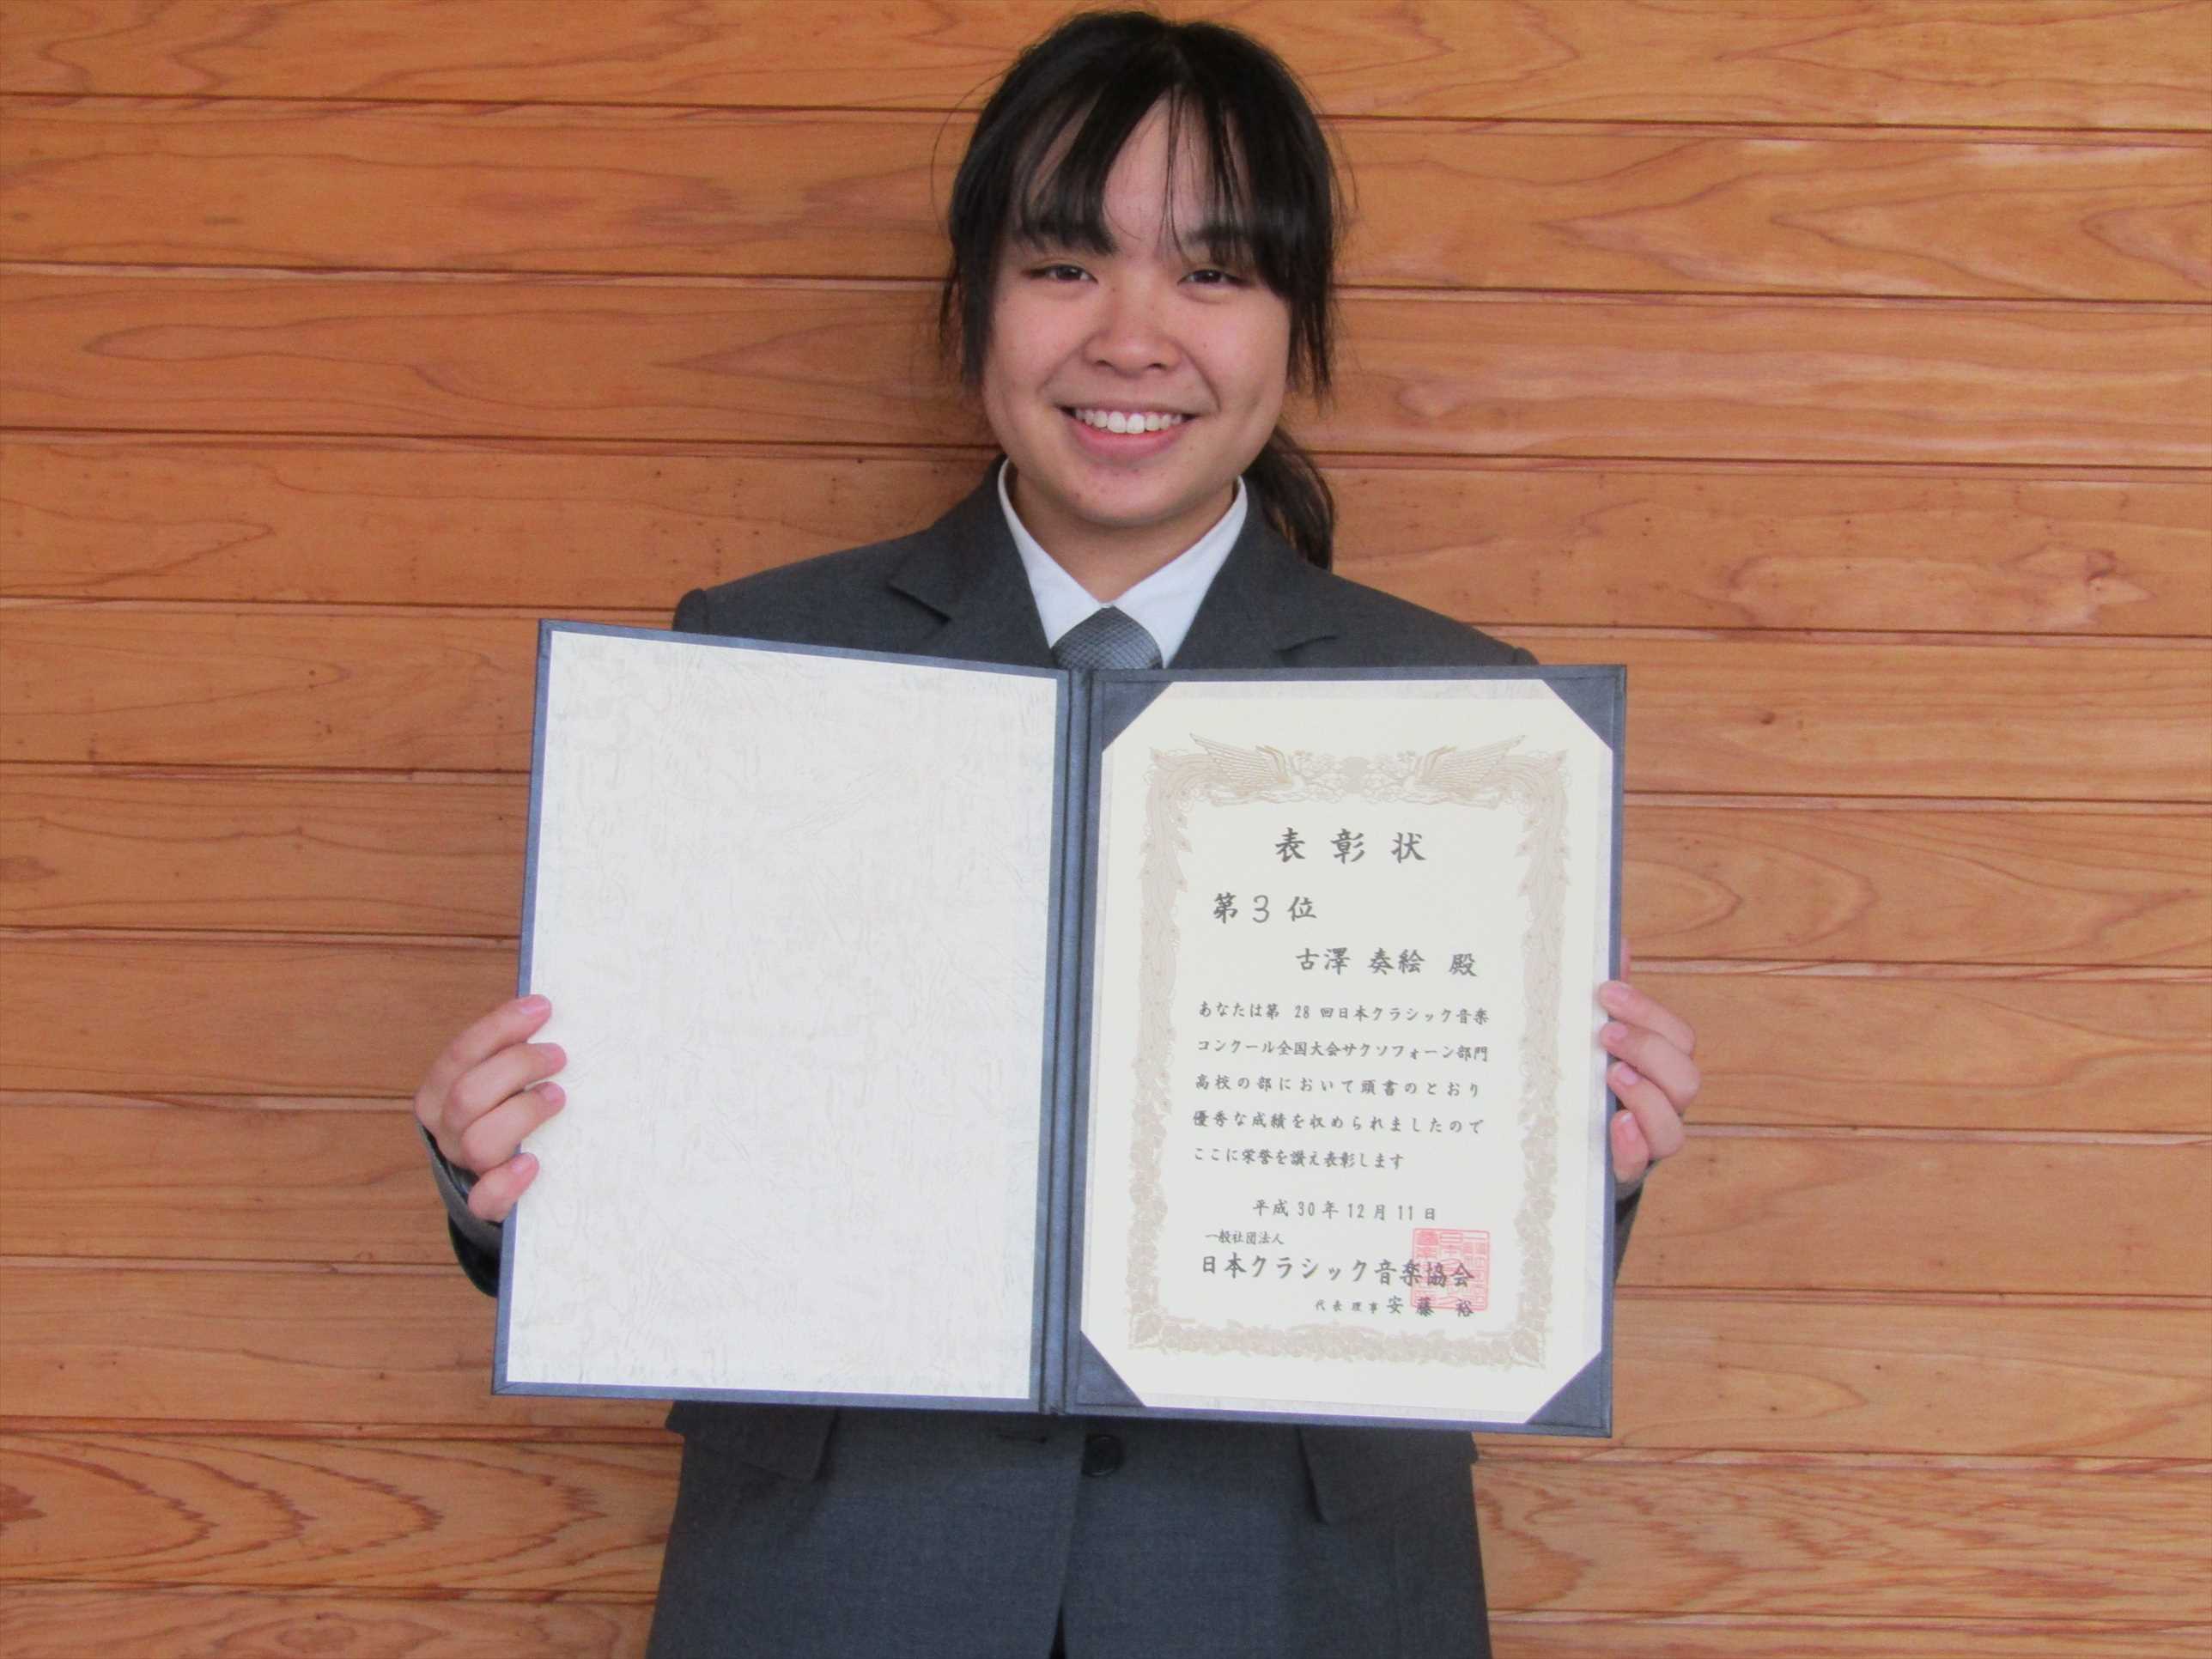 表彰状
第3位
古澤 奏絵 殿
あなたは第 28 回日本クラシック音楽
コンクール全国大会サクソフォーン部門
高校の部において頭書のとおり
優秀な成績を収められましたので
ここに栄誉を讃え表彰します
平成30年12月11日
一般社団法人
日本クラシック音楽協会
代表理事 安藤 裕